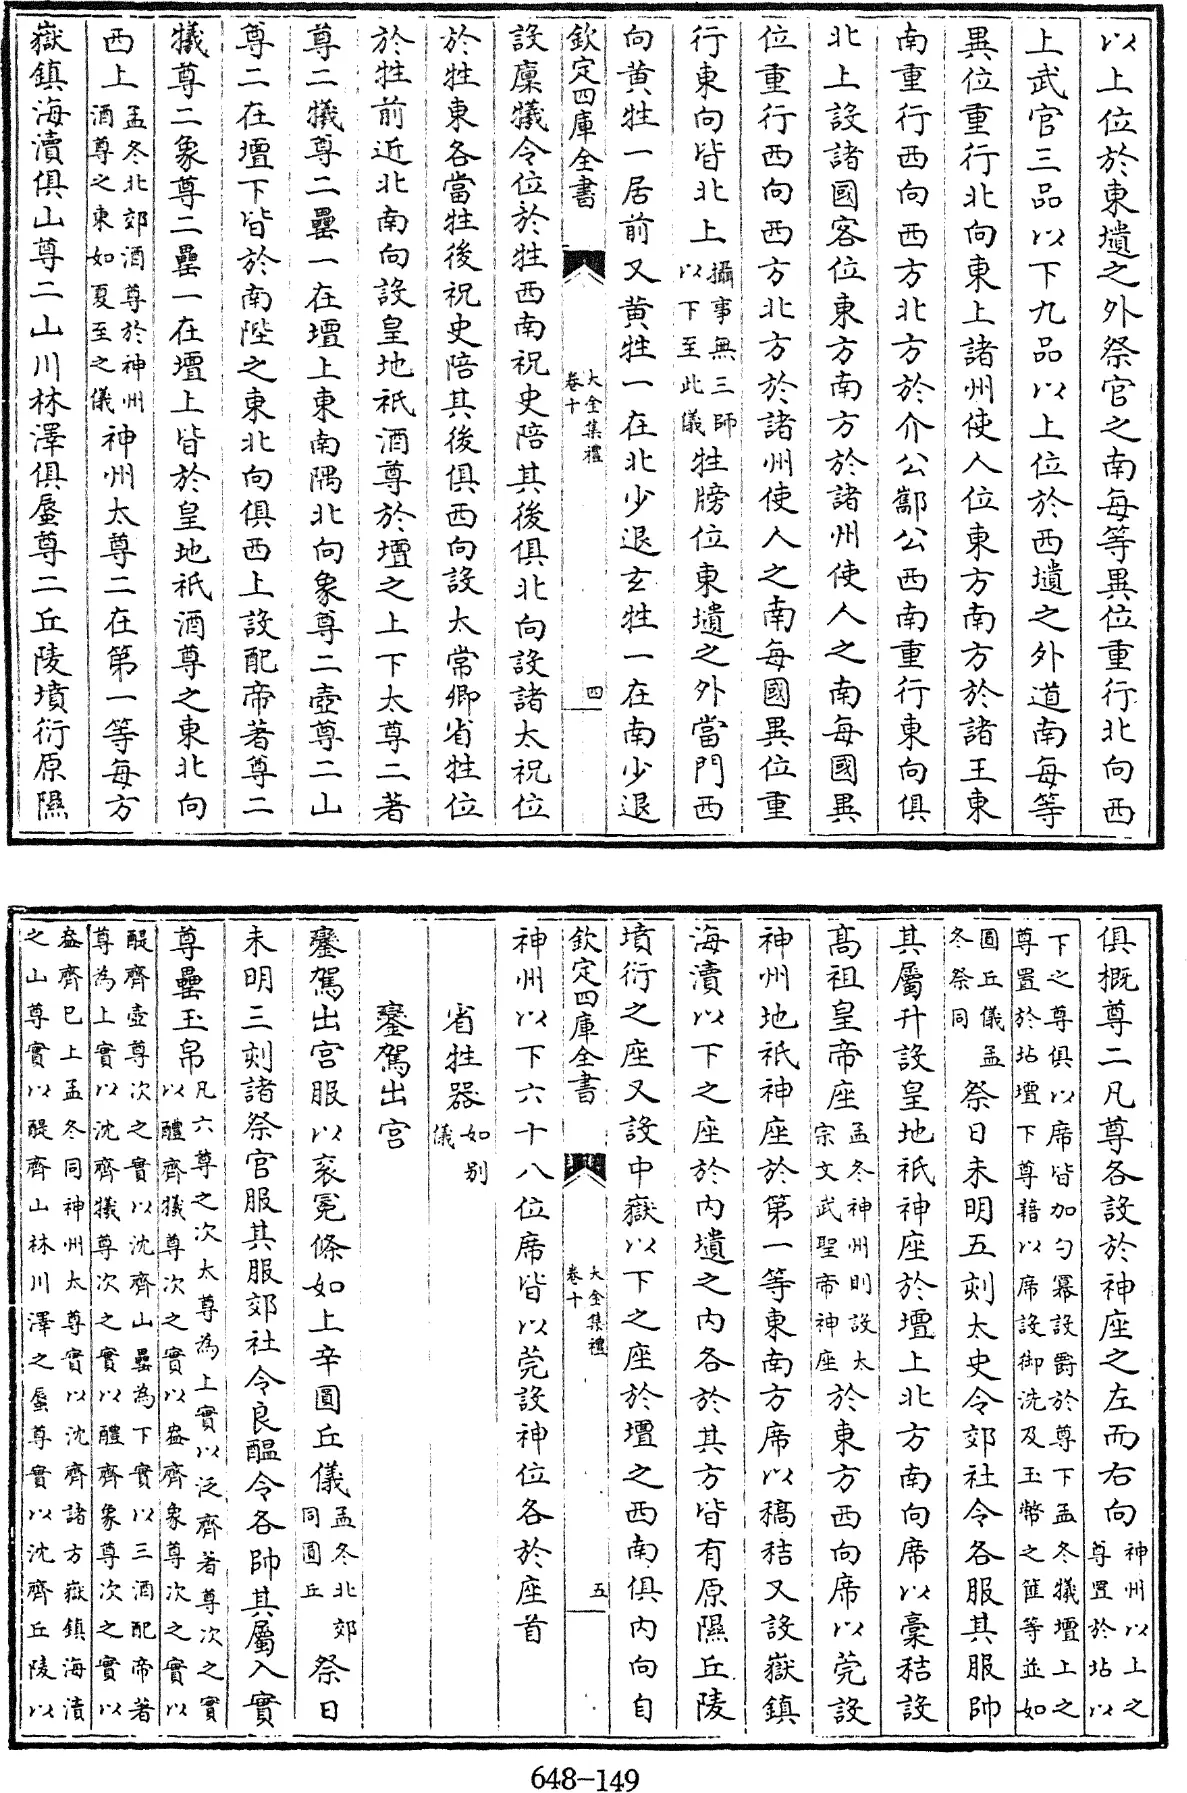 以上位於東壝之外祭官之南每等異位重行北向西
上武官三品以下九品以上位於西壝之外道南每等
異位重行北向東上諸州使人位東方南方於諸王東
南重行西向西方北方於介公酅公西南重行東向俱
北上設諸國客位東方南方於諸州使人之南每國異
位重行西向西方北方於諸州使人之南每國異位重
行東向皆北上攝事無三師以下至此儀牲牓位東壝之外當門西
向黃牲一居前又黃牲一在北少退玄牲一在南少退
欽定四庫全書 大金集禮 卷十 四
設廪犧令位於牲西南祝史陪其後俱北向設諸太祝位
於牲東各當牲後祝史陪其後俱西向設太常卿省牲位
於牲前近北南向設皇地祇酒尊於壇之上下太尊二著
尊二犧尊二罍一在壇上東南隅北向象尊二壺尊二山
尊二在壇下皆於南陛之東北向俱西上設配帝著尊二
犧尊二象尊二罍一在壇上皆於皇地祇酒尊之東北向
西上孟冬北郊酒尊於神州酒尊之東如夏至之儀神州太尊二在第一等每方
嶽鎮海瀆俱山尊二山川林澤俱蜃尊二丘陵墳衍原隰
俱概尊二凡尊各設於神座之左而右向神州以上之尊置於坫以
下之尊俱以席皆加勺冪設爵於尊下孟冬犧壇上之尊置於坫壇下尊藉以席設御洗及玉幣之篚等並如
圓丘儀孟冬祭同祭日未明五刻太史令郊社令各服其服帥
其屬升設皇地祇神座於壇上北方南向席以藁秸設
高祖皇帝座孟冬神州則設太宗文武聖帝神座於東方西向席以莞設
神州地祇神座於第一等東南方席以稿秸又設嶽鎮
海瀆以下之座於內壝之內各於其方皆有原隰丘陵
墳衍之座又設中嶽以下之座於壇之西南俱內向自
欽定四庫全書 大金集禮 卷十 五
神州以下六十八位席皆以莞設神位各於座首
省牲器如別儀
鑾駕出宮
鑾駕出宮服以衮冕條如上辛圓丘儀孟冬北郊同圓丘祭日
未明三刻諸祭官服其服郊社令良醞令各帥其屬入實
尊罍玉帛凡六尊之次太尊為上實以泛齊著尊次之實以醴齊犧尊次之實以盎齊象尊次之實以
醍齊壺尊次之實以沈齊山罍為下實以三酒配帝著尊為上實以沈齊犧尊次之實以醴齊象尊次之實以
盎齊已上孟冬同神州太尊實以沈齊諸方嶽鎮海瀆之山尊實以醍齊山林川澤之蜃尊實以沈齊丘陵以
648-149